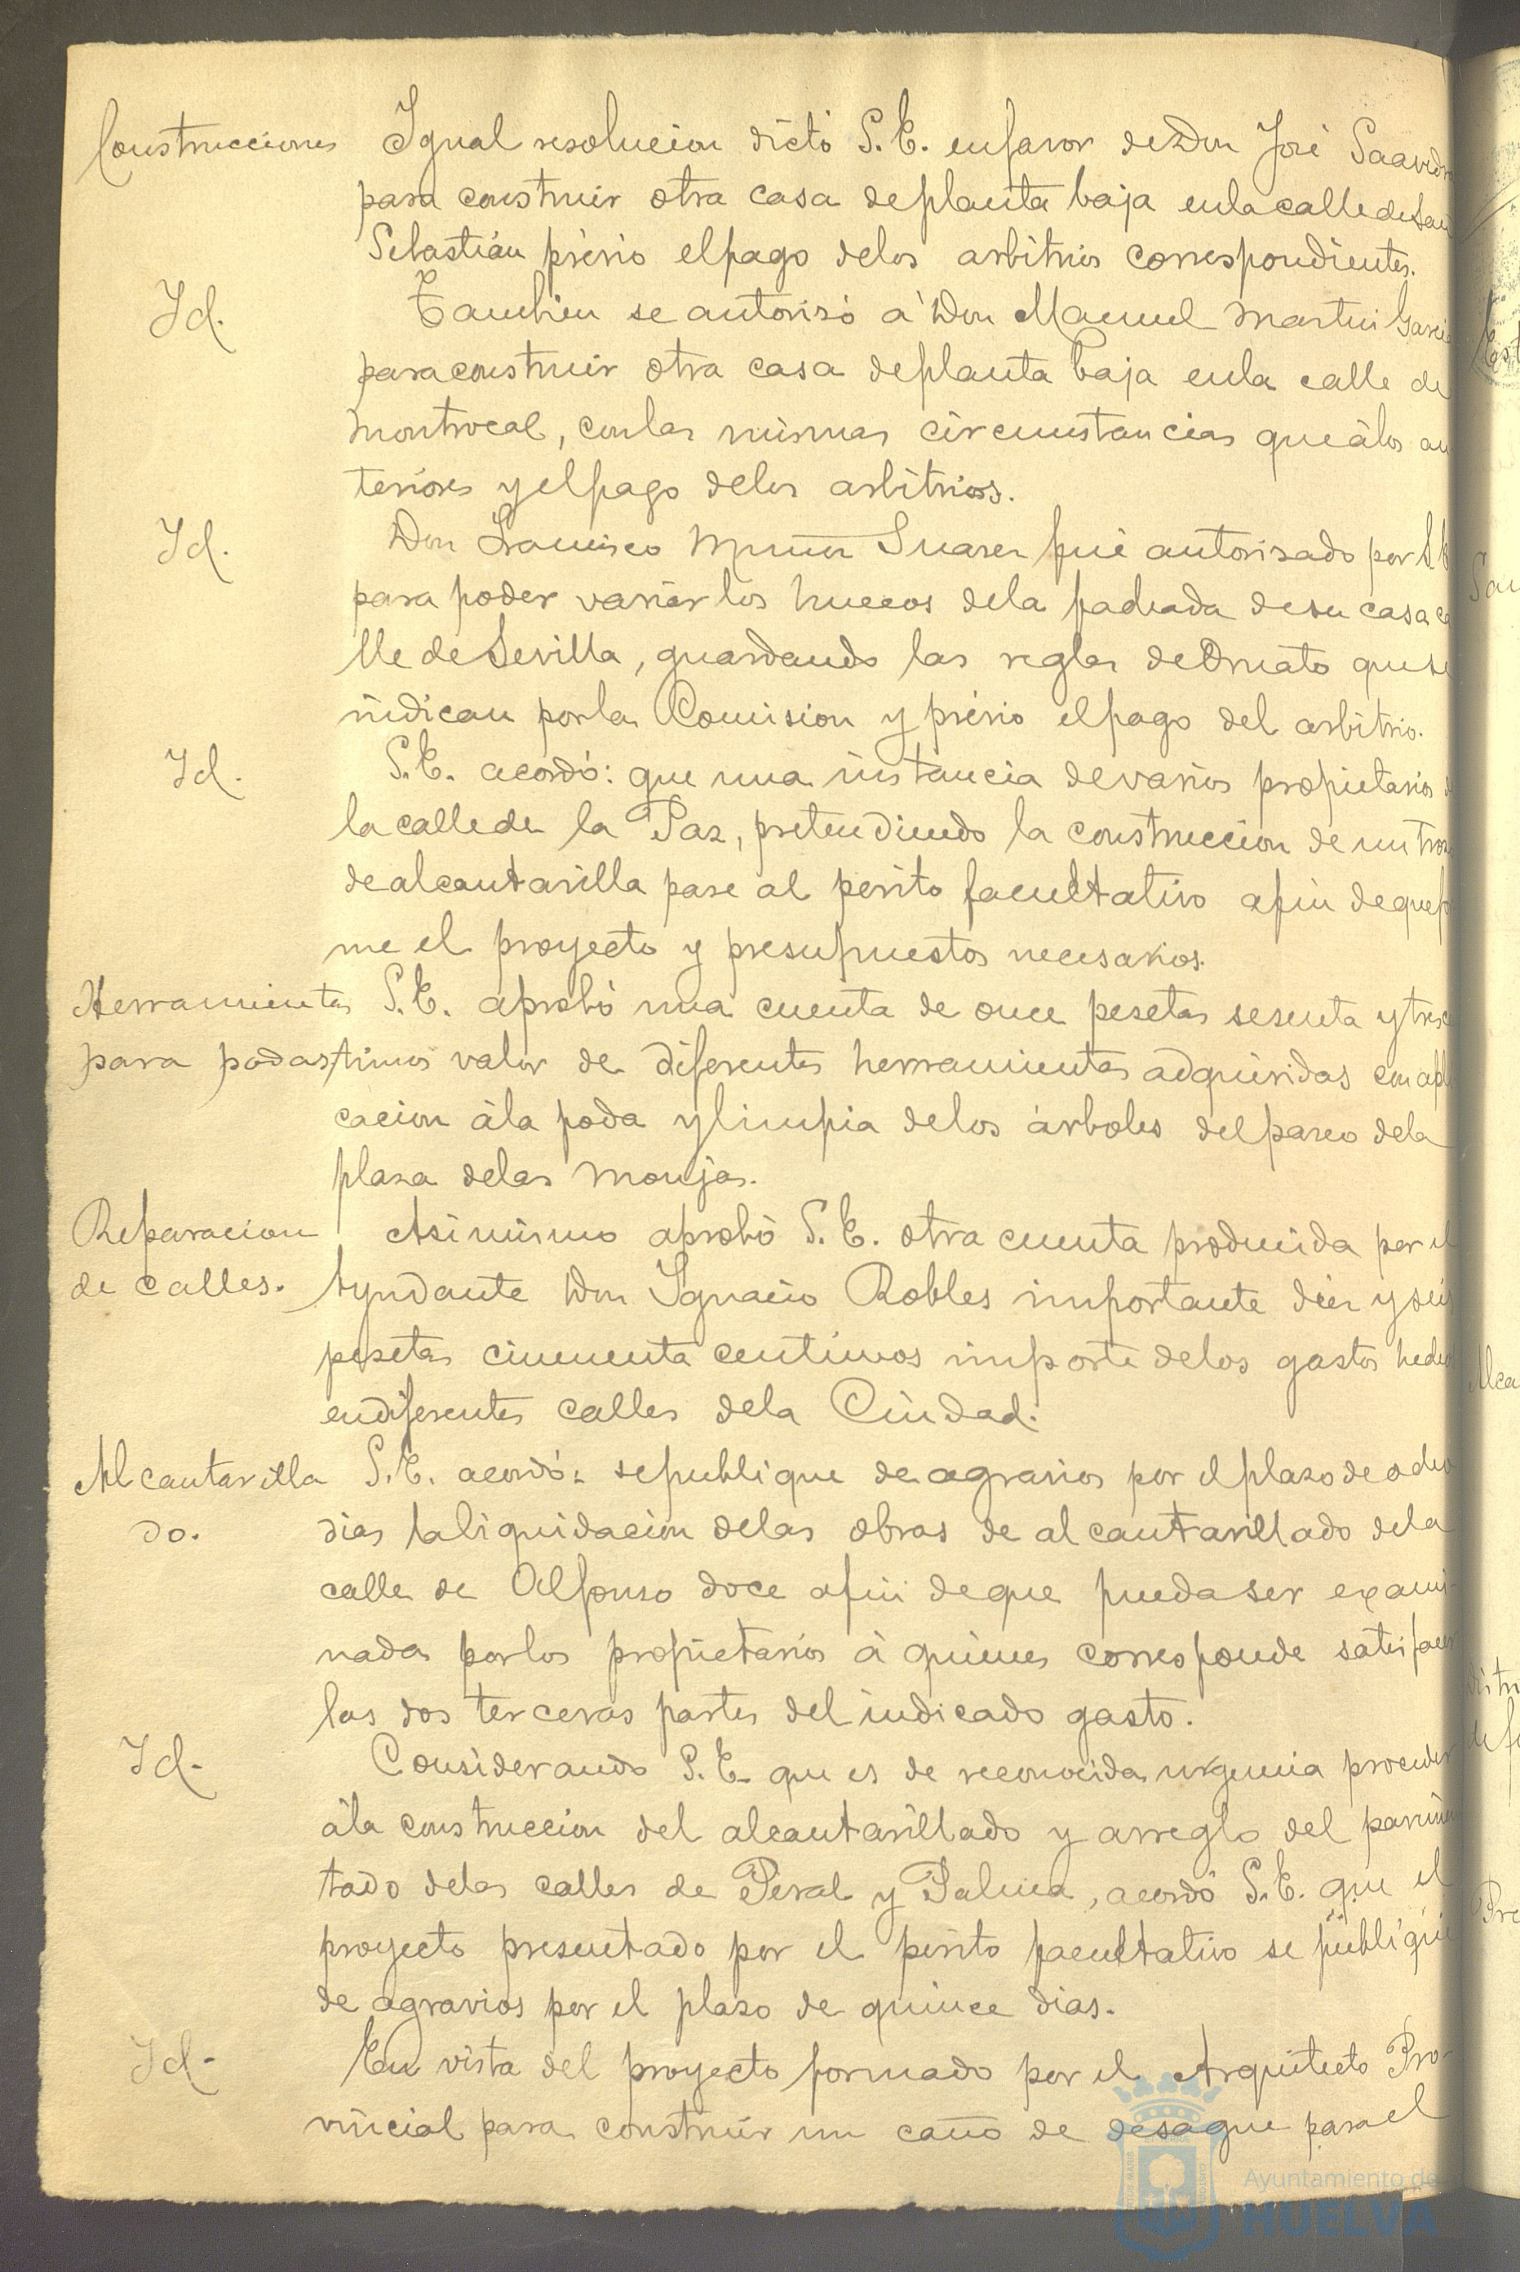 Construcciones Igual resolucion dictó S. E. en favor de Don José Saavedra
para construir otra casa de planta baja en la calle de San
Sebastián prévio el pago de los arbitrios correspondientes.
Id. Tambien se autorizó á Don Manuel Martin Garcia
para construir otra casa de planta baja en la calle de
Montrocal, con las mismas circunstancias que á los an
teriores y el pago de los arbitrios.
Id. Don Francisco Muñoz Suarez fué autorizado por S. E.
para poder variar los huecos de la fachada de su casa ca
lle de Sevilla, guardando las reglas de Ornato que se
indican por la Comision y prévio el pago del arbitrio.
Id. S. E. acordó: que una instancia de varios propietarios de
la calle de la Paz, pretendiendo la construccion de un trozo
de alcantarilla pase al perito facultativo afin de que for
me el proyecto y presupuestos necesarios.
Herramientas S. E. aprobó una cuenta de once pesetas sesenta y tres cen
para podas timos valor de diferentes herramientas adquiridas con apli
cacion á la poda y limpia de los árboles del paseo de la
plaza de las Monjas.
Reparacion Asi mismo aprobó S. E. otra cuenta producida por el
de calles. Ayudante Don Ignacio Robles importante diez y seis
pesetas cincuenta centimos importe de los gastos hechos
en diferentes calles de la Ciudad.
Alcantarilla S. E. acordó: se publique de agravios por el plazo de ocho
do. dias la liquidacion de las obras de alcantarillado de la
calle de Alfonso doce afin de que pueda ser exami-
nada por los propietarios á quienes corresponde satisfacer
las dos terceras partes del indicado gasto.
Id. Considerando S. E. que es de reconocida urgencia proceder
á la construccion del alcantarillado y arreglo del pavimen
tado de las calles de Peral y Palma, acordó S. E. que el
proyecto presentado por el perito facultativo se publique
de agravios por el plazo de quince dias.
Id. En vista del proyecto formado por el Arquitecto Pro-
vincial para construir un caño de desague para el
Ayuntamiento de
HUELVA